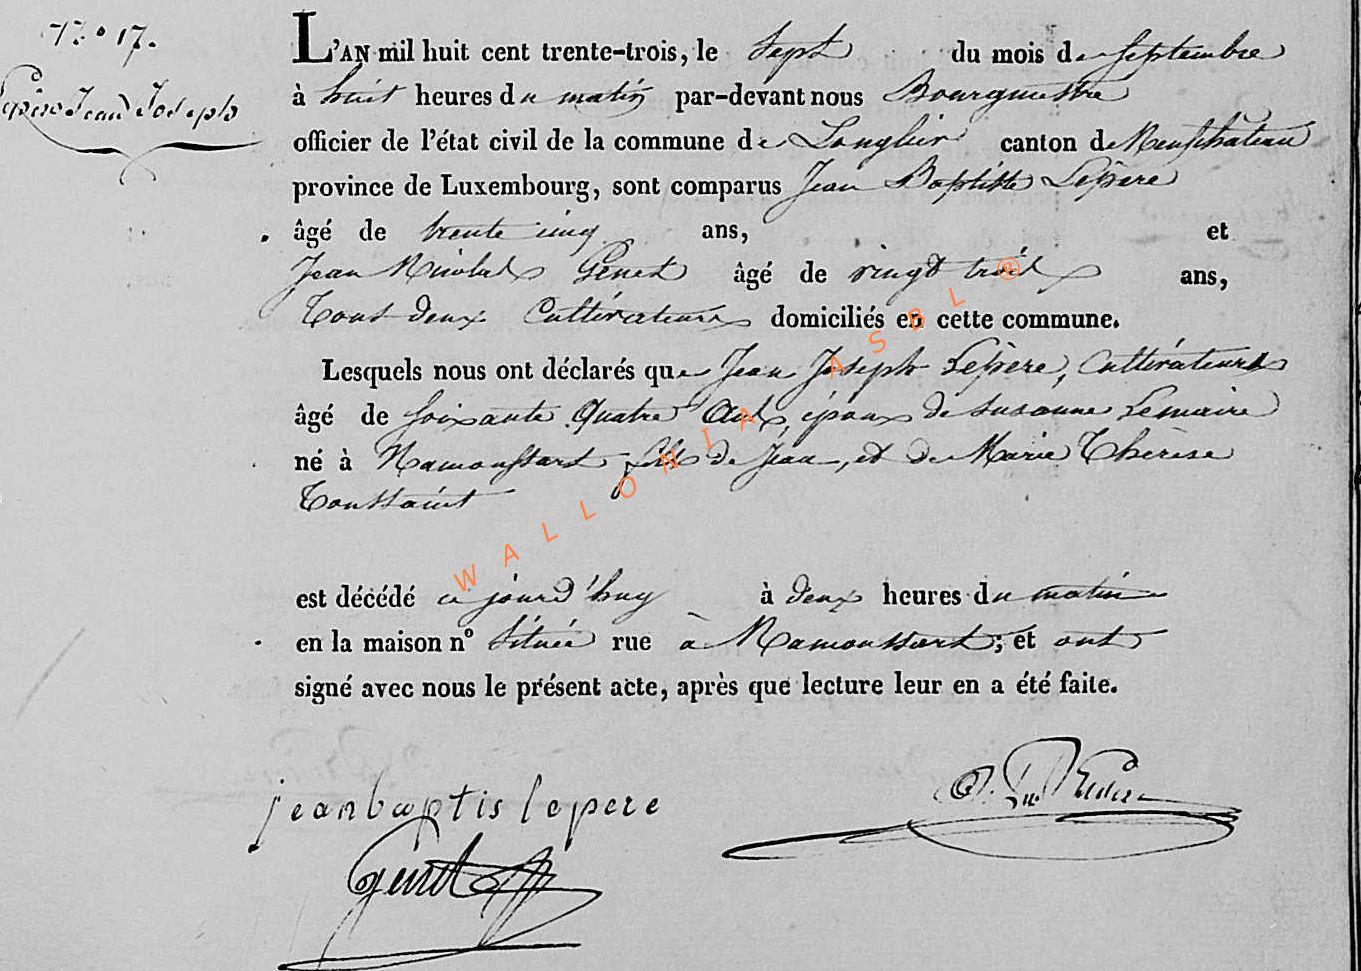 N.° 17.
Lepère Jean Joseph
L'AN mil huit cent trente-trois, le Sept du mois de Septembre
à huit heures du matin par-devant nous Bourguestre
officier de l'état civil de la commune de Longlier canton de Neufchâteau
province de Luxembourg, sont comparus Jean Baptiste Lepère
âgé de trente cinq ans, et
Jean Nicolas Genet âgé de vingt trois ans,
Tous deux Cultivateurs domiciliés en cette commune.
Lesquels nous ont déclarés que Jean Joseph Lepère, Cultivateur
âgé de soixante Quatre Ans, époux de Susanne Lemaire
né à Namoussart fils de Jean, et de Marie Thérèse
Toussaint
est décédé ce jourd'huy à deux heures du matin
en la maison n° Située rue à Namoussart; et ont
signé avec nous le présent acte, après que lecture leur en a été faite.
jean baptis lepere
Genet
WALLONIA ASBL ®